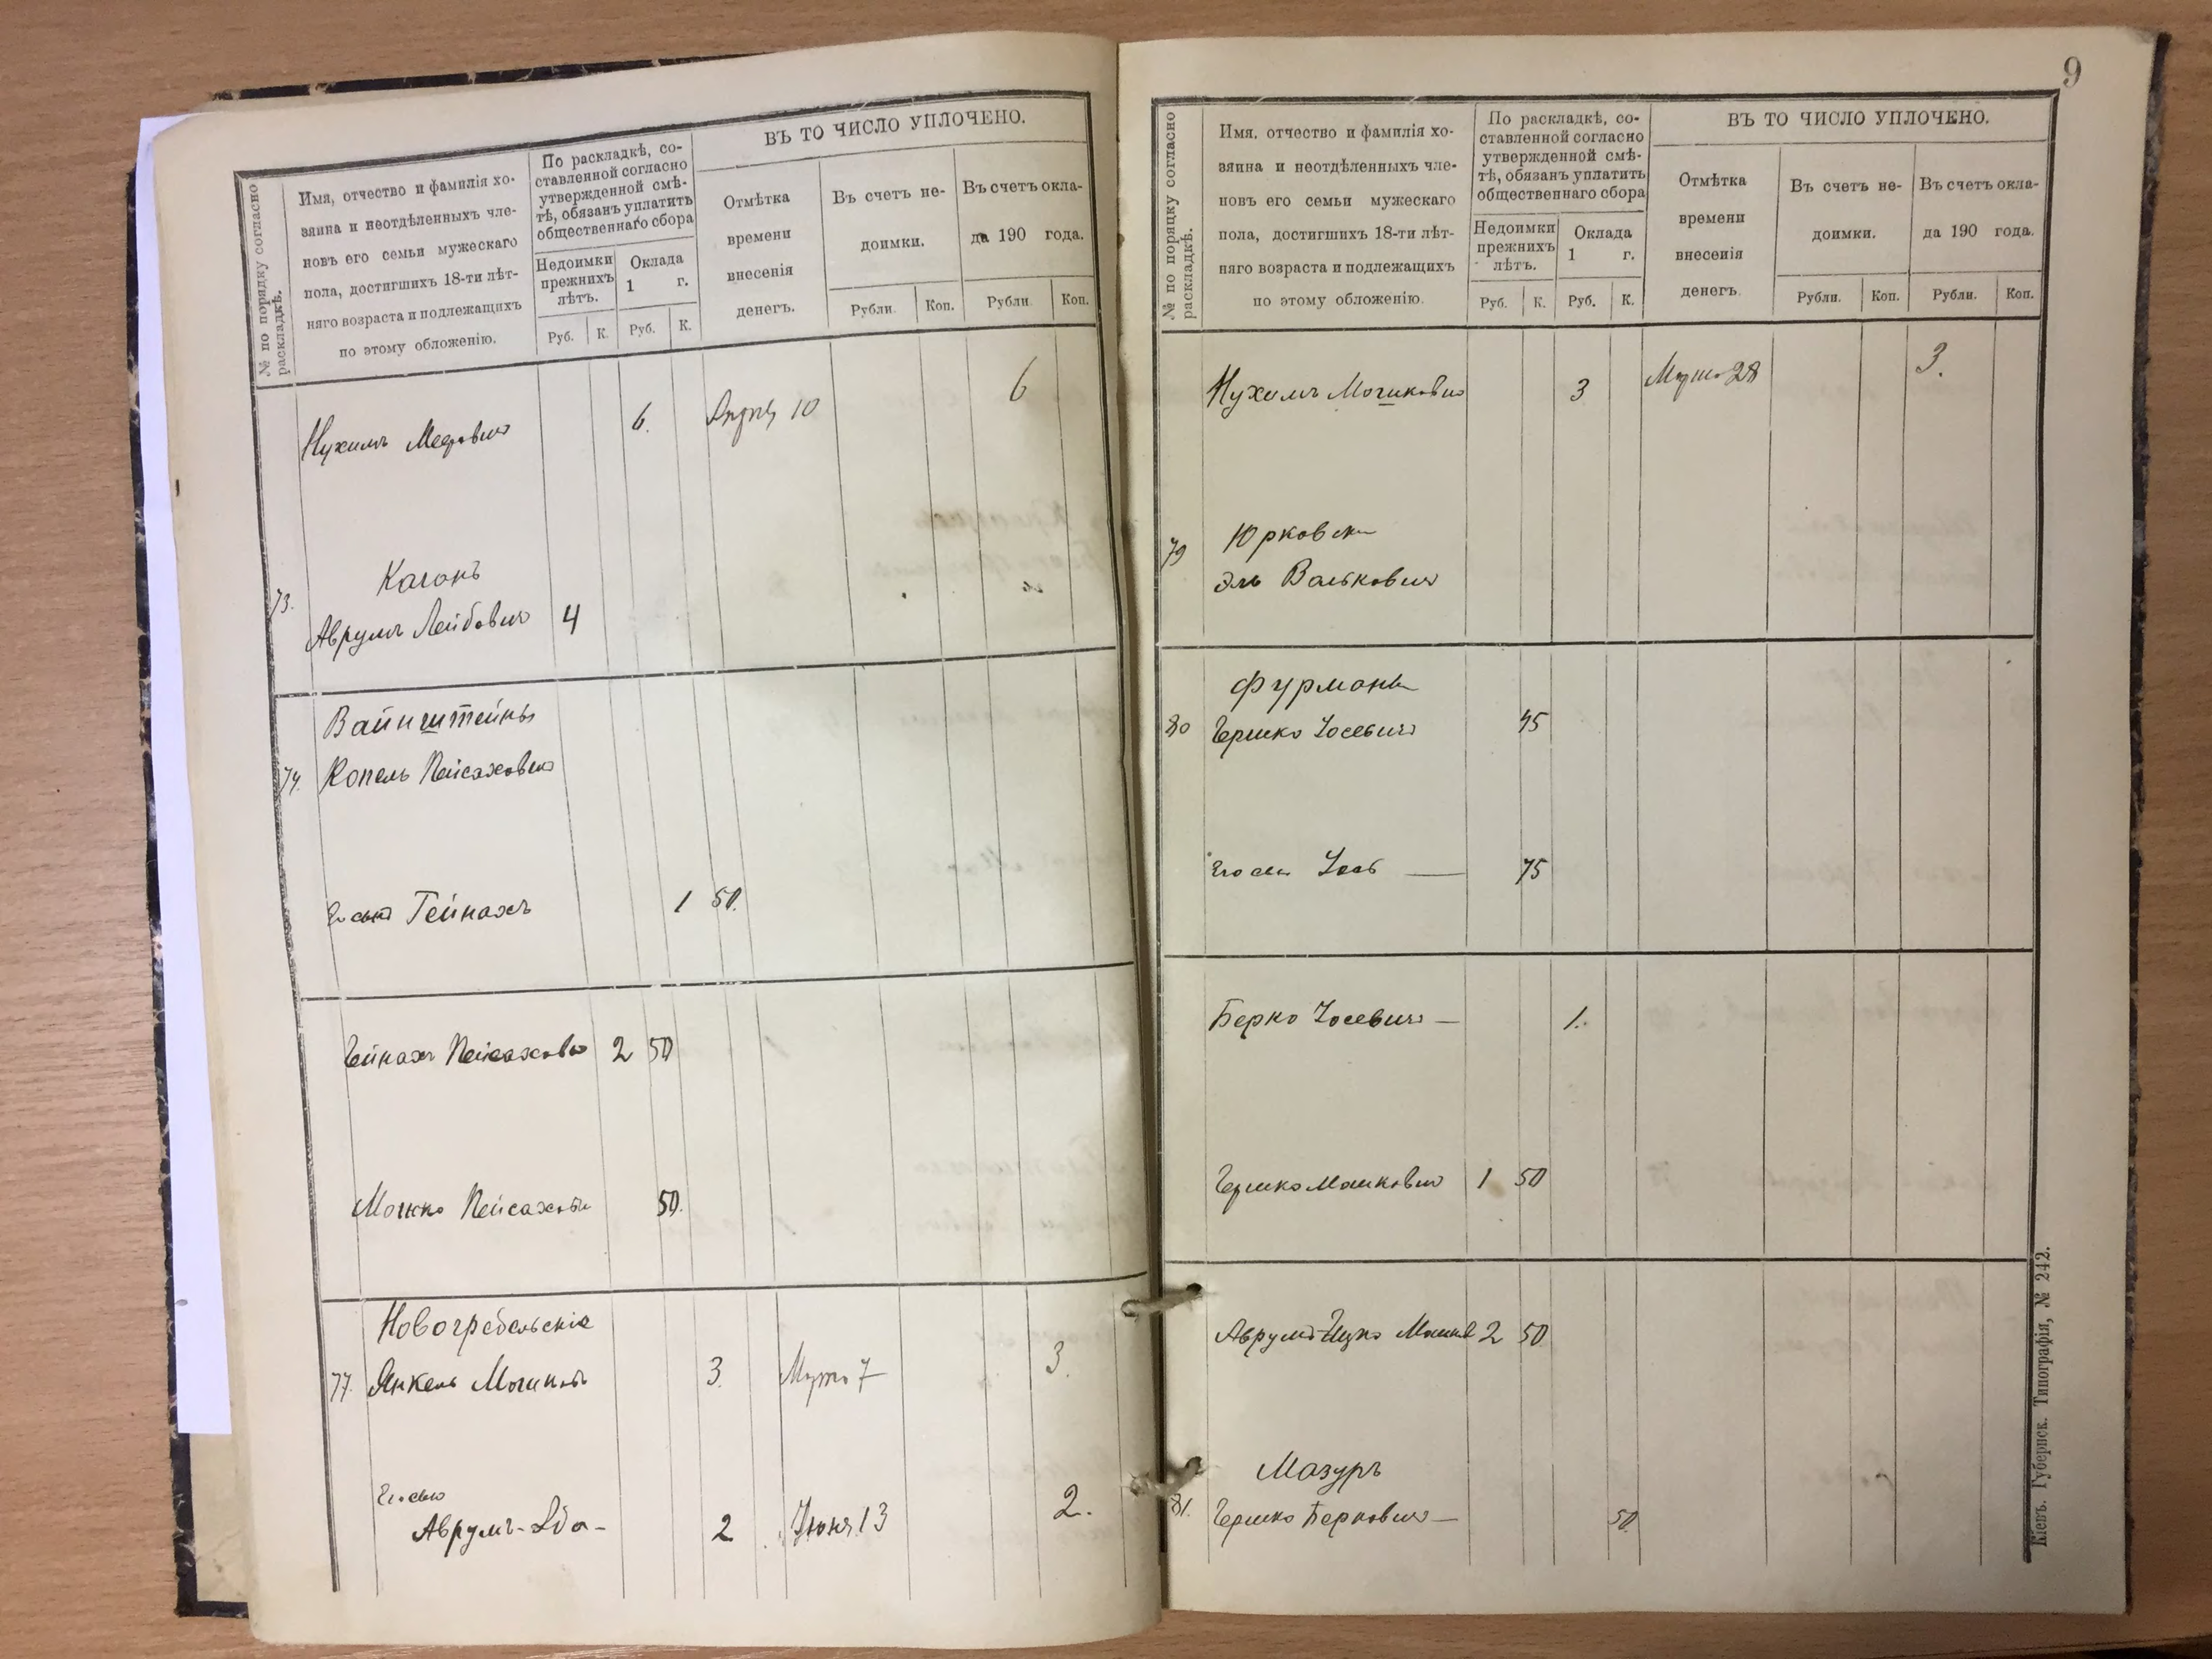 № по порядку согласно
раскладкѣ.
Имя, отчество и фамилія хо-
зяина и неотдѣленныхъ чле-
новъ его семьи мужескаго
пола, достигшихъ 18-ти лѣт-
няго возраста и подлежащихъ
по этому обложенію.
По раскладкѣ, со-
ставленной согласно
утвержденной смѣ-
тѣ, обязанъ уплатить
общественнаго сбора
Недоимки
прежнихъ
лѣтъ.
Оклада
1 г.
Руб. К. Руб. К.
ВЪ ТО ЧИСЛО УПЛОЧЕНО.
Отмѣтка
времени
внесенія
денегъ.
Въ счетъ не-
доимки.
Въ счетъ окла-
да 190 года.
Рубли. Коп. Рубли. Коп.
Нухимъ 6. 10 6
Каганъ
73. Аврумъ Лейбовичъ 4
Вайнштейнъ
74. Копель Пейсаховичъ
Его сынъ Гейнахъ 1 50.
Гейнахъ Пейсахов 2 50
Мошко Пейсахов 50.
Новогребельскіе
77. Янкель Мошков 3. Марта 7 3.
Его сынъ
Аврумъ-Аба- 2 Іюня 13 2.
9
№ по порядку согласно
раскладкѣ.
Имя, отчество и фамилія хо-
зяина и неотдѣленныхъ чле-
новъ его семьи мужескаго
пола, достигшихъ 18-ти лѣт-
няго возраста и подлежащихъ
по этому обложенію.
По раскладкѣ, со-
ставленной согласно
утвержденной смѣ-
тѣ, обязанъ уплатить
общественнаго сбора
Недоимки
прежнихъ
лѣтъ.
Оклада
1 г.
Руб. К. Руб. К.
ВЪ ТО ЧИСЛО УПЛОЧЕНО.
Отмѣтка
времени
внесенія
денегъ.
Въ счетъ не-
доимки.
Въ счетъ окла-
да 190 года.
Рубли. Коп. Рубли. Коп.
Нухимъ Мошковичъ 3 Марта 28 3.
Юрковск
79 Эль Вольковичъ
Фурманъ
80 Гершко Іосевичъ 75
Его сынъ 75
Берко Іосевичъ — 1.
Гершко Мошкович 1 50
Аврумъ-Ицко Мошков 2 50
Мазуръ
81. Гершко Берковичъ — 50.
Кіевъ. Губернск. Типографія, № 242.